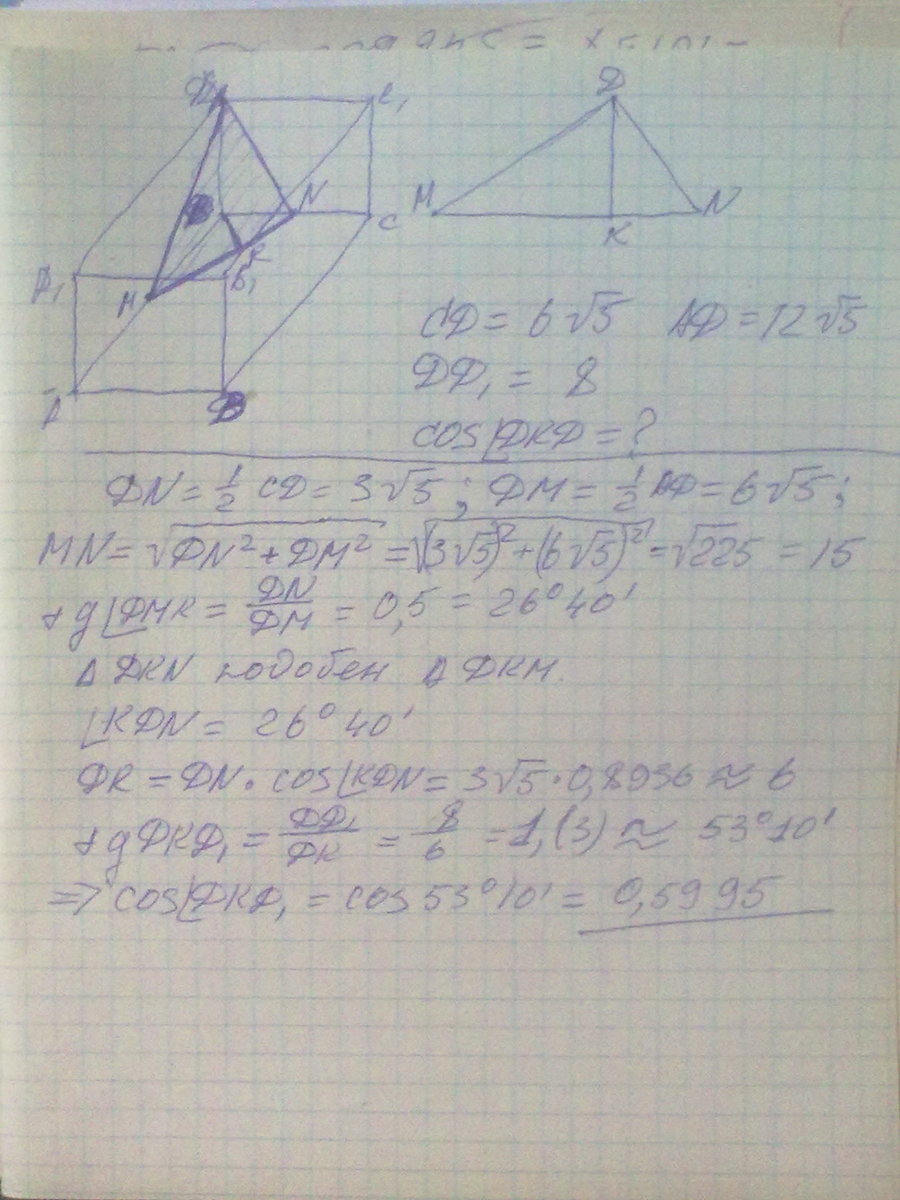 D₁ C₁
D
M K N
N
C
A₁ B₁ K
M
A B
CD = 6√5 AD = 12√5
DD₁ = 8
cos∠DKD = ?
DN = 1/2 CD = 3√5 ; DM = 1/2 AD = 6√5 ;
MN = √(DN² + DM²) = √((3√5)² + (6√5)²) = √225 = 15
tg∠DMK = DN/DM = 0,5 = 26°40'
Δ DKN подобен Δ DKM.
∠KDN = 26°40'
DK = DN · cos∠KDN = 3√5 · 0,8936 ≈ 6
tg DKD₁ = DD₁/DK = 8/6 = 1,(3) ≈ 53°10'
=> cos∠DKD₁ = cos 53°10' = 0,5995